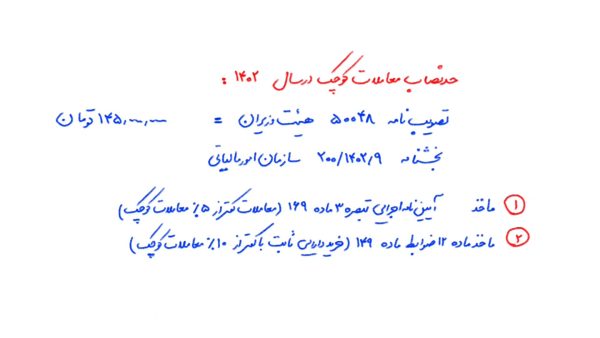 حد نصاب معاملات کوچک در سال ۱۴۰۲ :
تصویب نامه ۵۰۰۴۸ هیئت وزیران = ۱۴۵,۰۰۰,۰۰۰ تومان
بخشنامه ۲۰۰/۱۴۰۲/۹ سازمان امور مالیاتی
۱ ماخذ آیین نامه اجرایی تبصره ۳ ماده ۱۶۹ (معاملات کمتر از ۵٪ معاملات کوچک)
۲ ماخذ ماده ۱۲ ضوابط ماده ۱۴۹ (خرید دارایی ثابت با کمتر از ۱۰٪ معاملات کوچک)